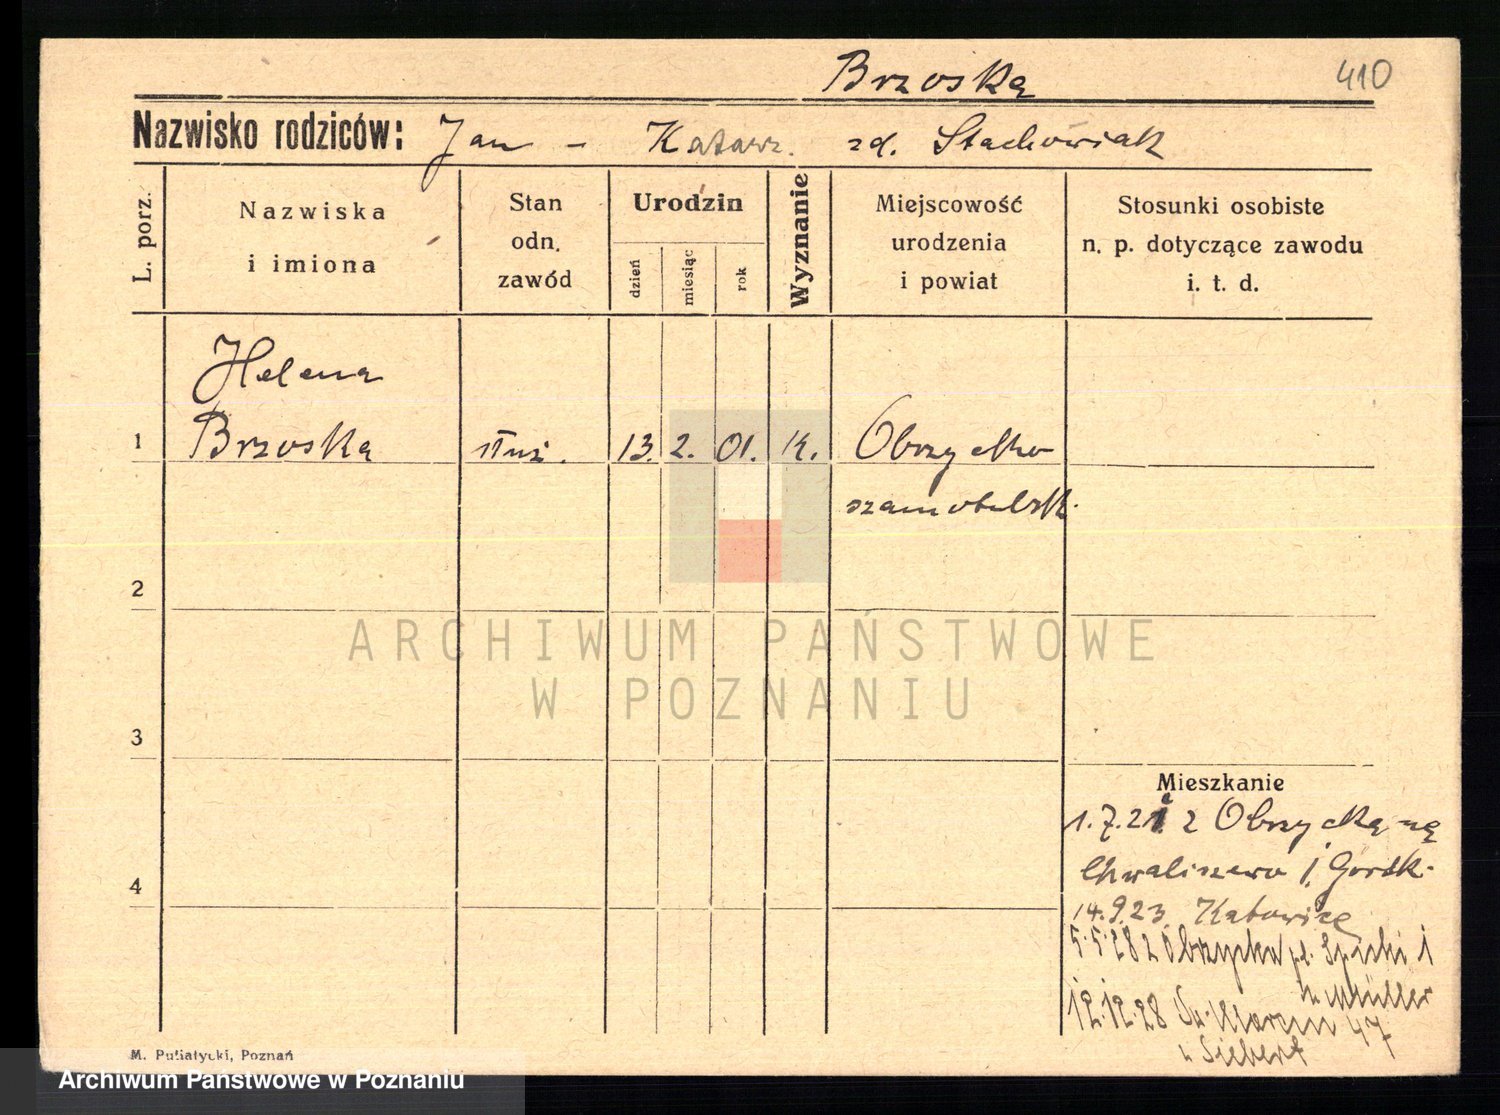 Brzoska 410
Nazwisko rodziców: Jan – Katarz. zd. Stachowiak
L. porz.
Nazwiska
i imiona
Stan
odn.
zawód
Urodzin
dzień
miesiąc
rok
Wyznanie
Miejscowość
urodzenia
i powiat
Stosunki osobiste
n. p. dotyczące zawodu
i. t. d.
Helena
1 Brzoska służ. 13. 2. 01. k. Obrzycko
szamotulsk.
2
ARCHIWUM PAŃSTWOWE
W POZNANIU
3
Mieszkanie
1.7.21 z Obrzycka na
Chwaliszewo 1, Gorsk.
4
14.9.23 Katowice
5.5.28 z Obrzycka pl. 1
Müller
12.12.28 Św. Marcin 47
Siebert
M. Putiatycki, Poznań
Archiwum Państwowe w Poznaniu